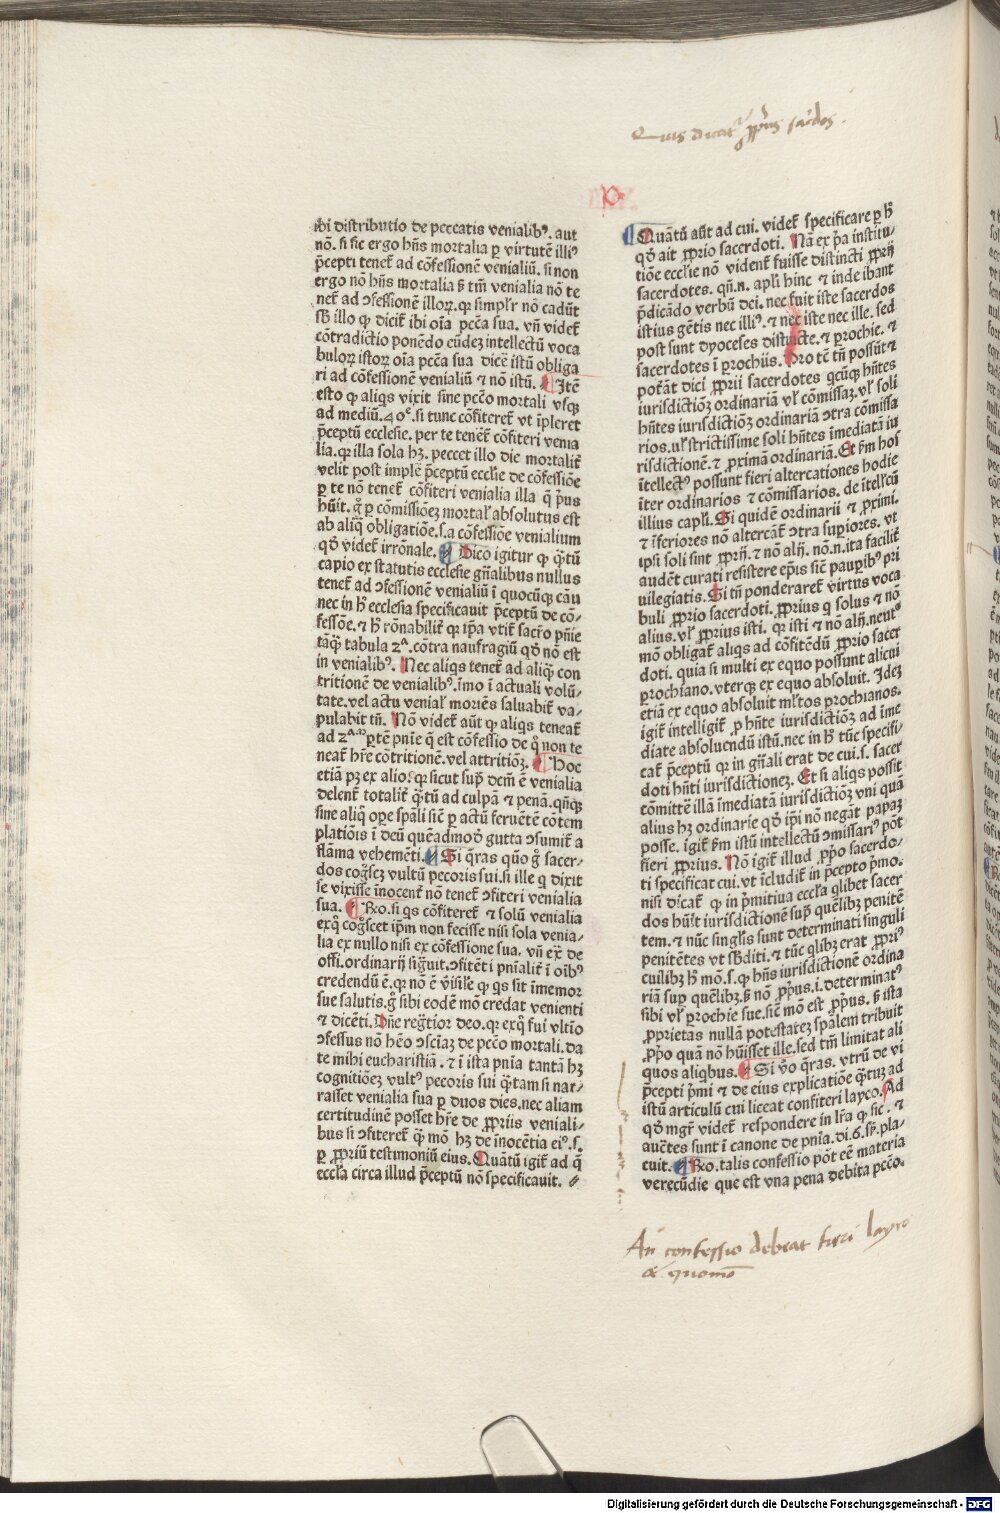 Quis dicatʳ ꝓprius sacdos.
ibi distributio de peccatis venialibꝰ. aut
nō. si sic ergo hn̄s mortalia ꝑ virtutē illiꝰ
p̄cepti tenet̄ ad cōfessionē venialiū. si non
ergo nō hn̄s mortalia ß tm̄ venialia nō te
net̄ ad ↄfessionē illoꝝ. qꝛ simplr̄ nō cadūt
sb̄ illo ꝙ dicit̄ ibi oīa pctā sua. vn̄ videt̄
cōtradictio ponēdo eūdeꝫ intellectū voca
buloꝝ istoꝝ oīa pctā sua dicē istū obliga
ri ad cōfessionē venialiū ⁊ nō istū. Itē
esto ꝙ aliqs vixit sine pctō mortali vsqꝫ
ad mediū. 40ᵉ. si tunc cōfiteret̄ vt īpleret
p̄ceptū ecclesie. per te tenet̄ cōfiteri venia
lia. qꝛ illa sola hꝫ. peccet illo die mortalit̄
velit post implē p̄ceptū eccl'ie de cōfessiōe
ꝑ te nō tenet̄ cōfiteri venialia illa q̄ pꝰus
hūit. g̊ ꝑ cōmissioēꝫ mortal' absolutus est
ab aliq̄ obligatiōe. s. a cōfessiōe venialium
qd̄ videt̄ irrōnale. Dico igitur ꝙ q̄tū
capio ex statutis ecclesie gn̄alibus nullus
tenet̄ ad ↄfessionē venialiū ī quocūqꝫ cāu
nec in h̄ ecclesia specificauit p̄ceptū de cō⸗
fessōe. ⁊ h̄ rōnabilit̄ qꝛ ip̄a vtit̄ sacrō pn̄ie
tāq̄ꝫ tabula 2ᵃ. cōtra naufragiū qd̄ nō est
in venialibꝰ. Nec aliqs tenet̄ ad aliq̄ꝫ con
tritionē de venialibꝰ. īmo ī actuali volū⸗
tate. vel actu venial' moriēs saluabit̄ va⸗
pulabit tn̄. Nō videt̄ aūt ꝙ aliqs teneat̄
ad 2ᵃᵐ ꝑtē pn̄ie q̄ est cōfessio de q̊ non te
neat̄ hr̄e cōtritionē. vel attritiōꝫ. Hoc
etiā pꝫ ex alio. qꝛ sicut supͣ dcm̄ ē venialia
delent̄ totalit̄ q̄tū ad culpā ⁊ penā. qn̄qꝫ
sine aliq̊ oꝑe sp̄ali sic ꝑ actū feruētē cōtem
platiōis ī deū quēadmodū gutta ↄsumit̄ a
flāma vehemēti. Si q̄ras quō g̊ sacer⸗
dos cog̊scꝫ vultū pecoris sui. si ille q dixit
se vixisse īnocent̄ nō tenet̄ ↄfiteri venialia
sua. Rō. si qs cōfiteret̄ ⁊ solū venialia
exqͦ cog̊scet ip̄m non fecisse nisi sola venia⸗
lia ex nullo nisi ex cōfessione sua. vn̄ ex de
offi. ordinarij sigͥuit. ↄfitēti pn̄ialit̄ ī oībꝰ
credendū ē. qꝛ nō ē v̄isil'e ꝙ qs sit īmemor
sue salutis. g̊ sibi eodē mō credat venienti
⁊ dicēti. Dn̄e reg̊tior deo. qꝛ exqͦ fui vltīo
ↄfessus nō hēo ↄsciāꝫ de pctō mortali. da
te mihi eucharistiā. ⁊ ī ista pnīa tantā hꝫ
cognitiōeꝫ vultꝰ pecoris sui q̄tam si nar⸗
rasset venialia sua ꝑ duos dies. nec aliam
certitudinē posset hr̄e de ꝓprijs veniali⸗
bus si ↄfiteret̄ q̄ mō hꝫ de inocētia eiꝰ. s.
ꝑ ꝓpriū testimoniū eius. Quātū igit̄ ad q̄
eccl'ia circa illud p̄ceptū nō specificauit.
Quātū aūt ad cui. videt̄ specificare ꝑ h̄
qd̄ ait ꝓprio sacerdoti. Nā ex pͥa institu⸗
tiōe eccl'ie nō vident̄ fuisse distincti ꝓprij
sacerdotes. qn̄. n. apl'i hinc ⁊ inde ibant
p̄dicādo verbū dei. nec fuit iste sacerdos
istius gētis nec illiꝰ. ⁊ nec iste nec ille. sed
post sunt dyoceses distīcte. ⁊ ꝑochie. ⁊
sacerdotes ī ꝑochiis. Pro tē tn̄ possūt ⁊
poterāt dici ꝓprii sacerdotes qcūqꝫ hn̄tes
iurisdictiōꝫ ordinariā vl' cōmissaꝫ. vl' soli
hn̄tes iurisdictiōꝫ ordinariā ↄtra cōmissa
rios. vl' strictissime soli hn̄tes īmediatā iu
risdictionē. ⁊ ꝓximā ordinariā. Et s̄m hos
ītellectꝰ possunt fieri altercationes hodie
īter ordinarios ⁊ cōmissarios. de ītel'lcū
illius capl'i. Si quidē ordinarii ⁊ ꝓximi.
⁊ īferiores nō altercāt̄ ↄtra supͥiores. vt
ipsi soli sint ꝓprij. ⁊ nō alij. nō. n. ita facilit̄
audēt curati resistere ep̄is sic pauꝑibꝰ pri
uilegiatis. Si tn̄ ponderaret̄ virtus voca
buli ꝓprio sacerdoti. ꝓprius q solus ⁊ nō
alius. vl' ꝓprius isti. qꝛ isti ⁊ nō alij. neutͦ
mō obligat̄ aliqs ad cōfitēdū ꝓprio sacer
doti. quia si multi ex equo possunt alicui
ꝑochiano. vterqꝫ ex equo absoluit. Ideꝫ
etiā ex equo absoluit ml'tos ꝑochianos.
igit̄ intelligit̄ ꝓ hn̄te iurisdictiōꝫ ad īme
diate absoluendū istū. nec in h̄ tūc specifi⸗
cat̄ p̄ceptū qꝛ in gn̄ali erat de cui. s. sacer
doti hn̄ti iurisdictioneꝫ. Et si aliqs possit
cōmittē illā īmediatā iurisdictiōꝫ vni quā
alius hꝫ ordinarie qd̄ ip̄i nō negāt papaꝫ
posse. igit̄ s̄m istū intellectū ↄmissariꝰ pōt
fieri ꝓprius. Nō igit̄ illud ꝓpͦo sacerdo⸗
ti specificat cui. vt īcludit̄ in p̄cepto pͥmo.
nisi dīcat̄ ꝙ in pͥmitiua eccl'ia qlibet sacer
dos hūit iurisdictionē supͣ quēlibꝫ penitē
tem. ⁊ nūc singl'is sunt determinati singuli
penitētes vt sb̄diti. ⁊ tūc qlibꝫ erat ꝓpriꝰ
cuilibꝫ h̄ mō. s. ꝙ hn̄s iurisdictionē ordina
riā supͣ quēlibꝫ. ß nō ꝓpͥus. i. determinatꝰ
sibi vl' ꝑochie sue. sic mō est ꝓpͥus. ß ista
ꝓprietas nullā potestateꝫ sp̄alem tribuit
ꝓpͦo quā nō hūisset ille. sed tm̄ limitat ali
quos aliqbus. Si vͦo q̄ras. vtrū de vi
p̄cepti pͥmi ⁊ de eius explicatiōe q̄tuꝫ ad
istū articulū cui liceat confiteri layco. Ad
qd̄ mgr̄ videt̄ respondere in lr̄a ꝙ sic. ⁊
auctes sunt ī canone de pnīa. di. 6. sꝑ. pla⸗
cuit. Rō. talis confessio pōt eē materia
verecūdie que est vna pena debita pctō.
An confessio debeat fieri layco
& quomō
Digitalisierung gefördert durch die Deutsche Forschungsgemeinschaft - DFG